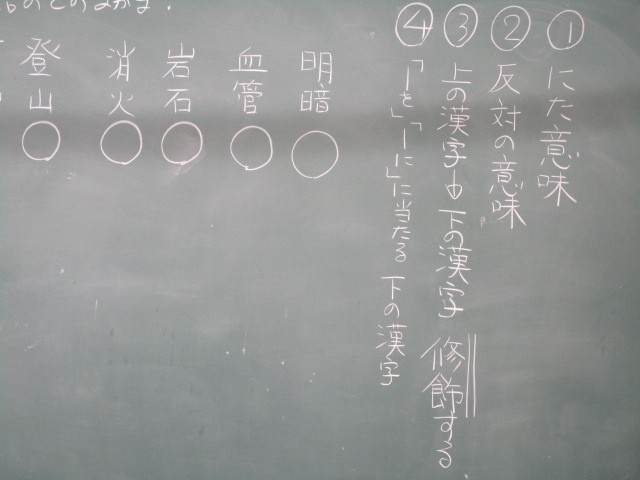 ① にた意味
② 反対の意味
③ 上の漢字が下の漢字 修飾する
④ 「―を」「―に」に当たる 下の漢字
明暗〇
血管〇
岩石〇
消火〇
登山〇